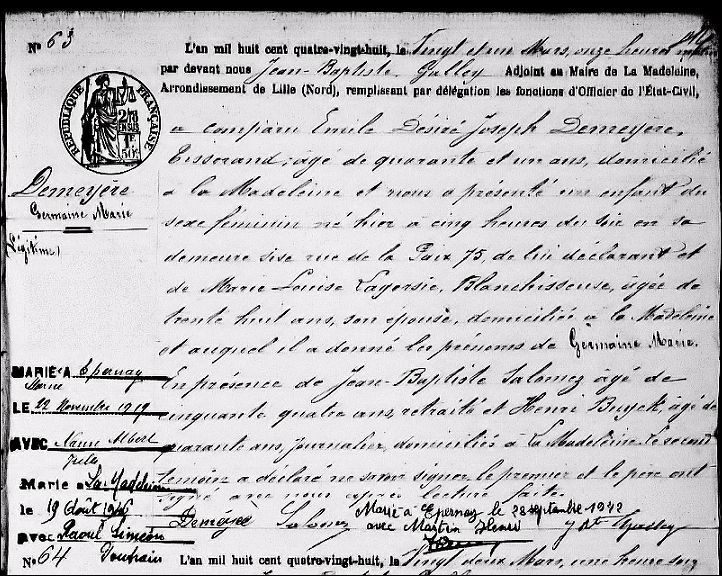 N° 63
L'an mil huit cent quatre-vingt-huit, le Vingt et un Mars, onze heures
par devant nous Jean-Baptiste Adjoint au Maire de La Madeleine,
Arrondissement de Lille (Nord), remplissant par délégation les fonctions d'Officier de l'État-Civil,
RÉPUBLIQUE FRANÇAISE
a comparu Emile Désiré Joseph Demeyère,
Tisserand, âgé de quarante et un ans, domicilié
à la Madeleine et nous a présenté un enfant du
sexe féminin né hier à cinq heures du soir en sa
demeure sise rue de la Paix 75, de lui déclarant et
de Marie Louise Blanchisseuse, âgée de
trente huit ans, son épouse, domiciliée à la Madeleine
et auquel il a donné les prénoms de Germaine Marie.
En présence de Jean-Baptiste Salomez âgé de
cinquante quatre ans, retraité et Henri Buyck, âgé de
quarante ans, journalier, domiciliés à La Madeleine. Le second
témoin a déclaré ne savoir signer. Le premier et le père ont
signé avec nous après lecture faite.
Demeyère Salomez
Demeyère
Germaine Marie
(Légitime)
MARIÉ A Epernay
Marne
LE 22 Novembre 1919
AVEC Albert
Jules
Marié à La Madeleine
le 19 Août 1926
avec Raoul Siméon
Marié à Epernay le 28 septembre 1942
avec Martin Henri
N° 64
L'an mil huit cent quatre-vingt-huit, le Vingt deux Mars, une heure